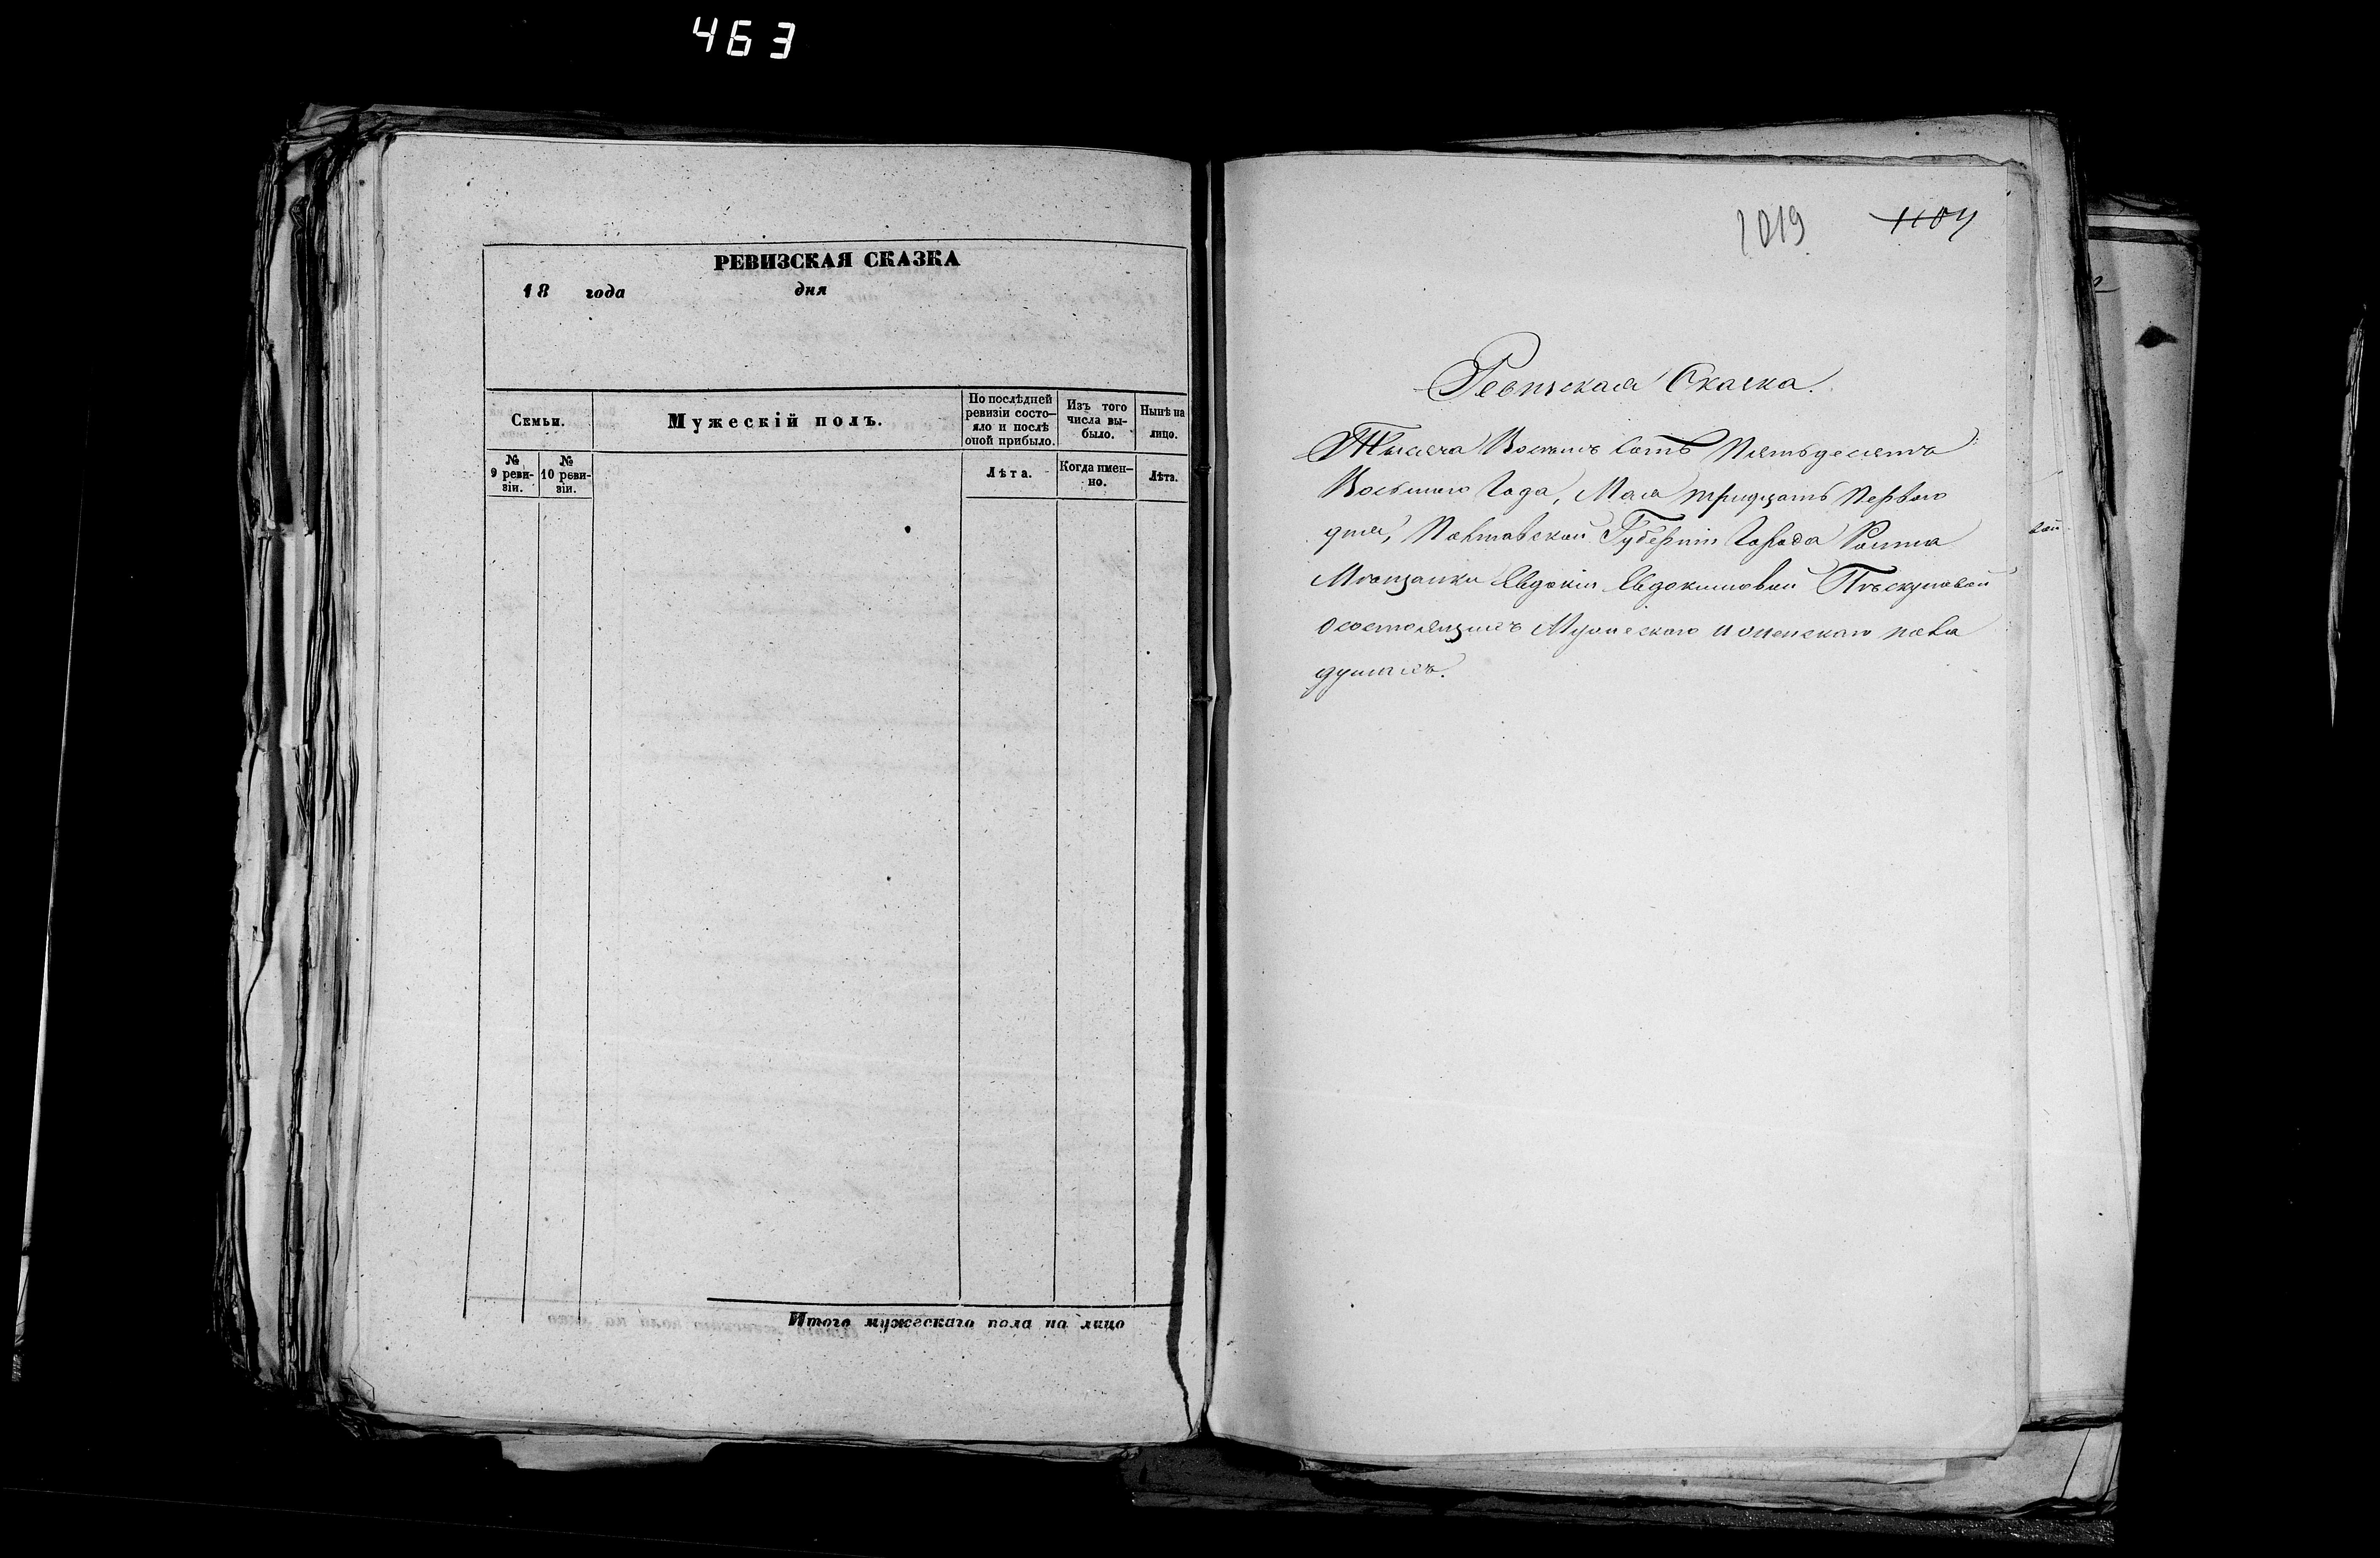 463
РЕВИЗСКАЯ СКАЗКА
18 года дня
Семьи.
Мужескій полъ.
По послѣдней ревизіи состояло и послѣ оной прибыло.
Изъ того числа выбыло.
Нынѣ на лицо.
№ 9 ревизіи.
№ 10 ревизіи.
Лѣта.
Когда именно.
Лѣта.
Итого мужескаго пола на лицо
1019 1104
Ревизская Сказка.
Тысяча Восемь сотъ Пятьдесятъ
Восьмого Года, Мая тридцать Первого
дня, Полтавской Губерніи Города Ромна
Мѣщанки Евдокіи Евдокимовой
о состоящихъ Мужеского и женскаго пола
душахъ.